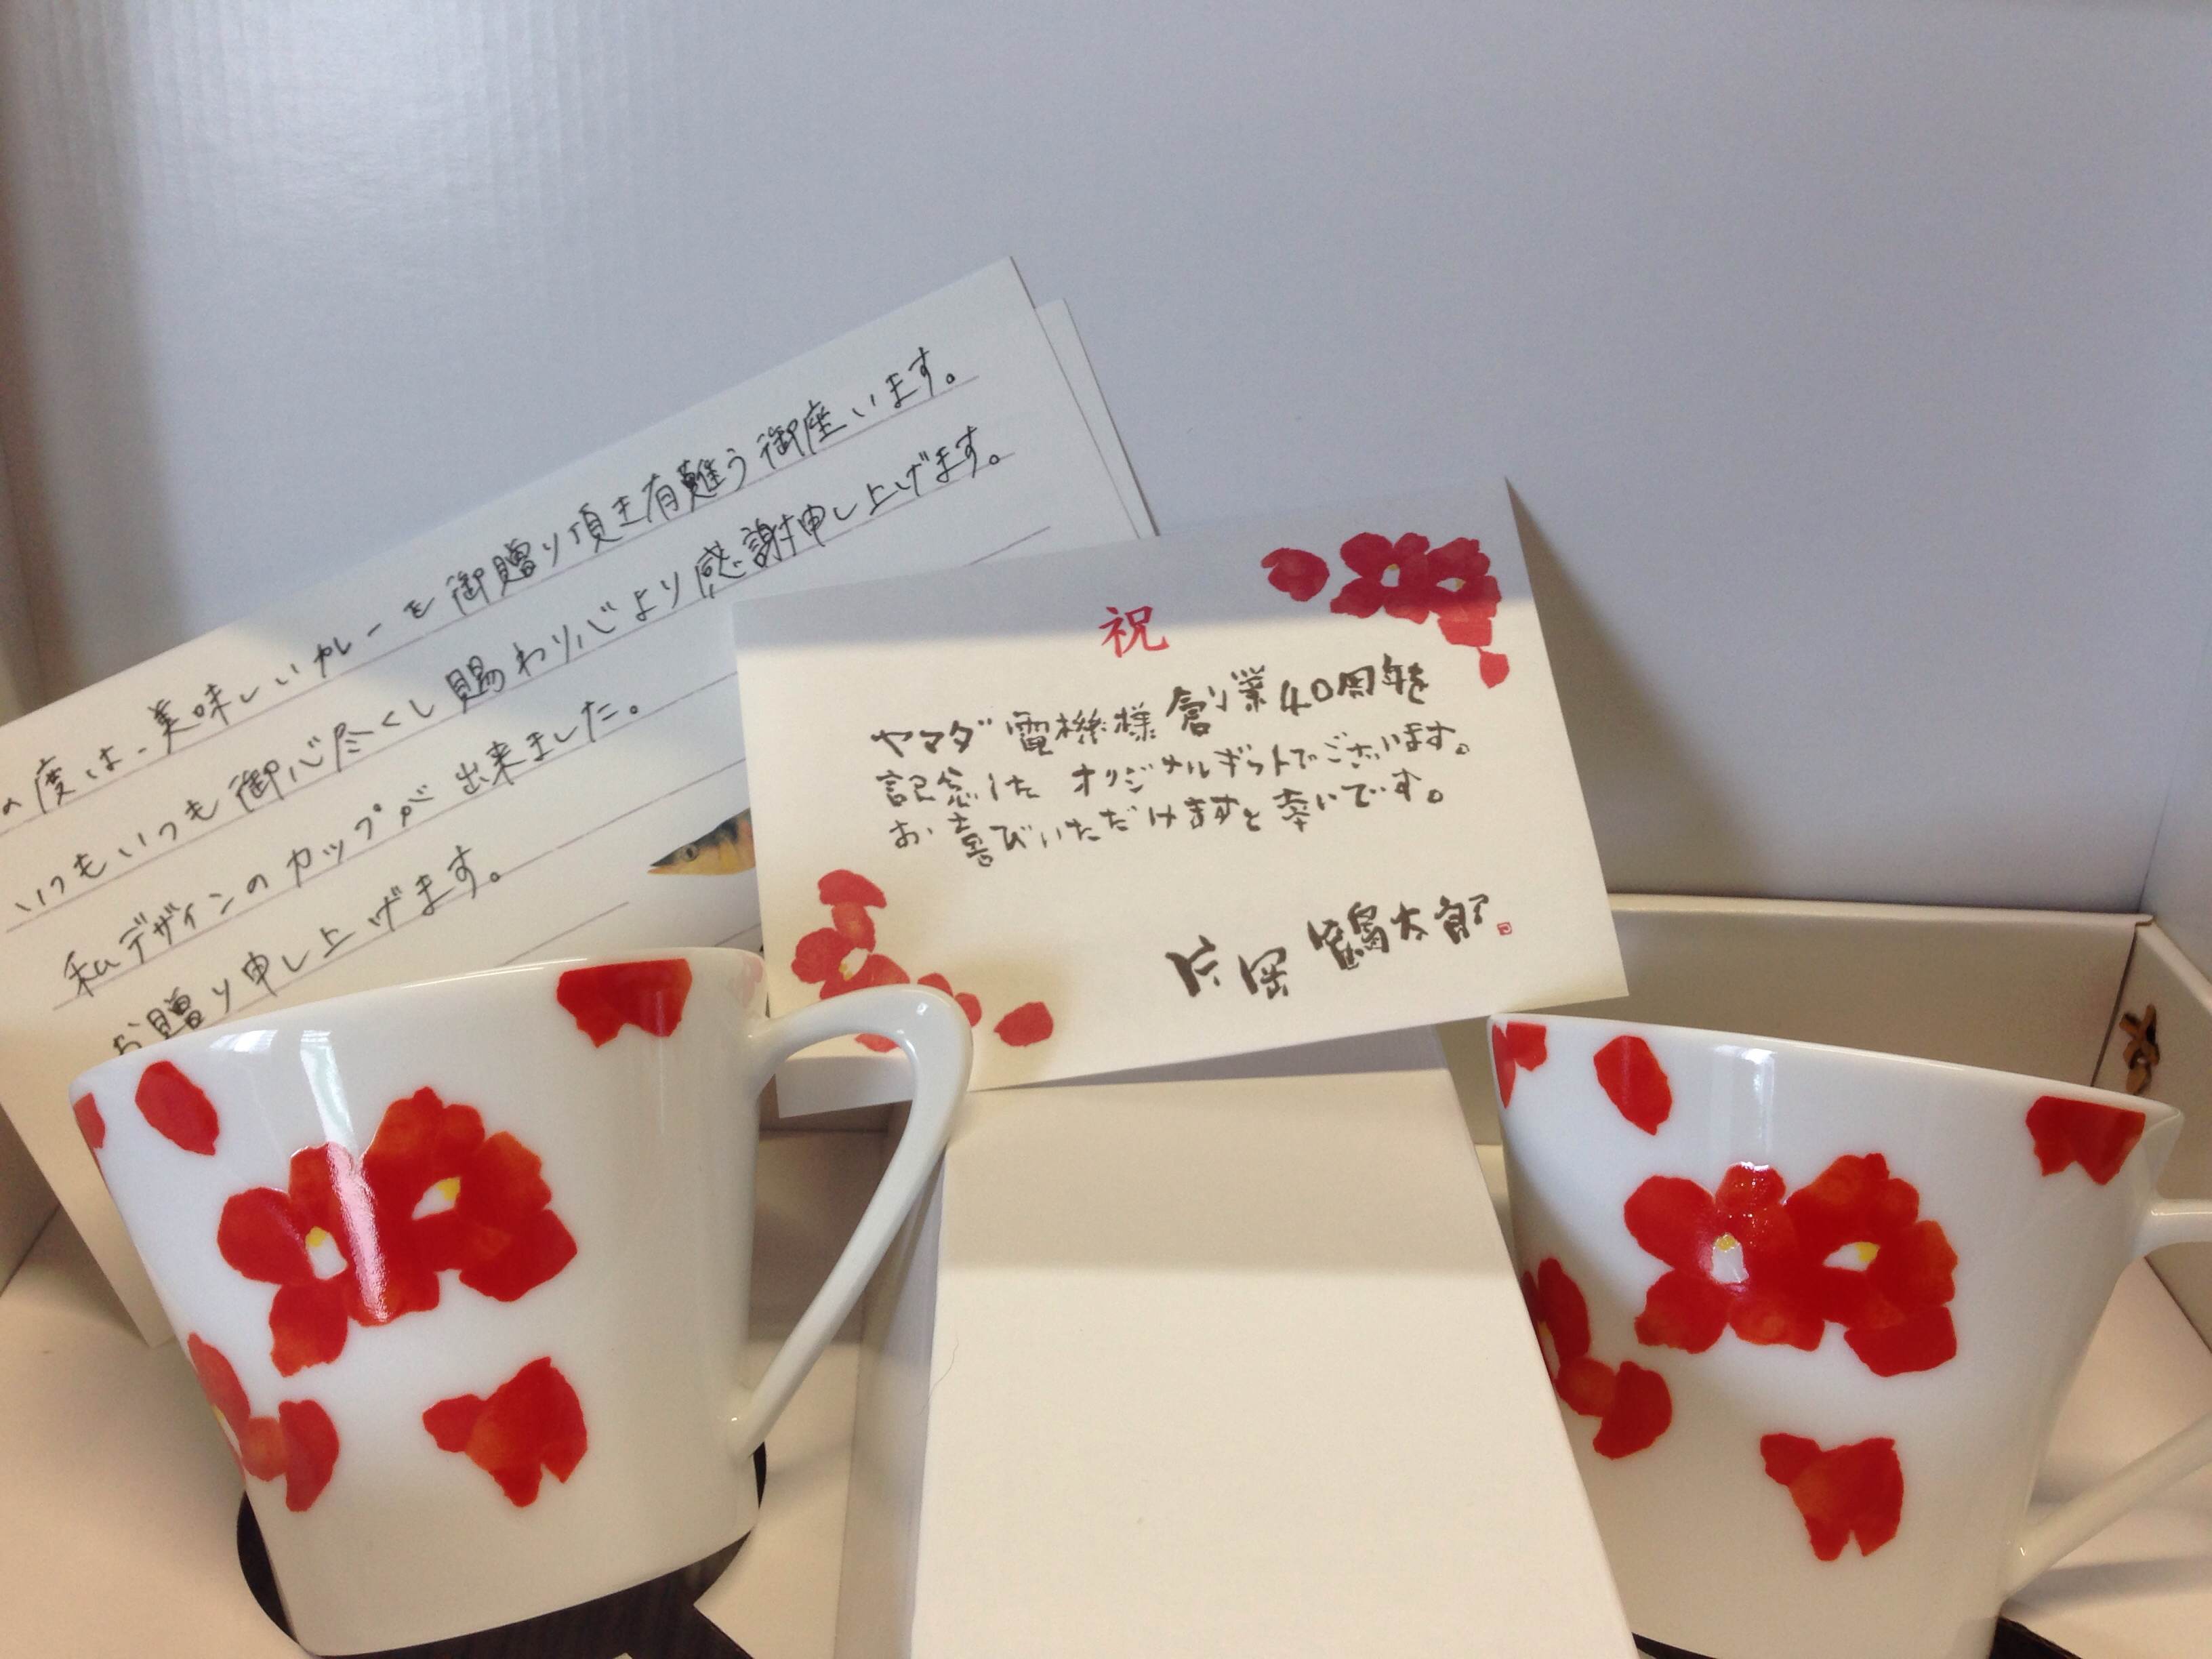 の度は、美味しいカレーを御贈り頂き有難う御座います。
いつもいつも御心尽くし賜わり、心より感謝申し上げます。
私デザインのカップが出来ました。
お贈り申し上げます。
祝
ヤマダ電機様創業40周年を
記念した オリジナルギフトでございます。
お喜びいただけますと幸いです。
片岡鶴太郎